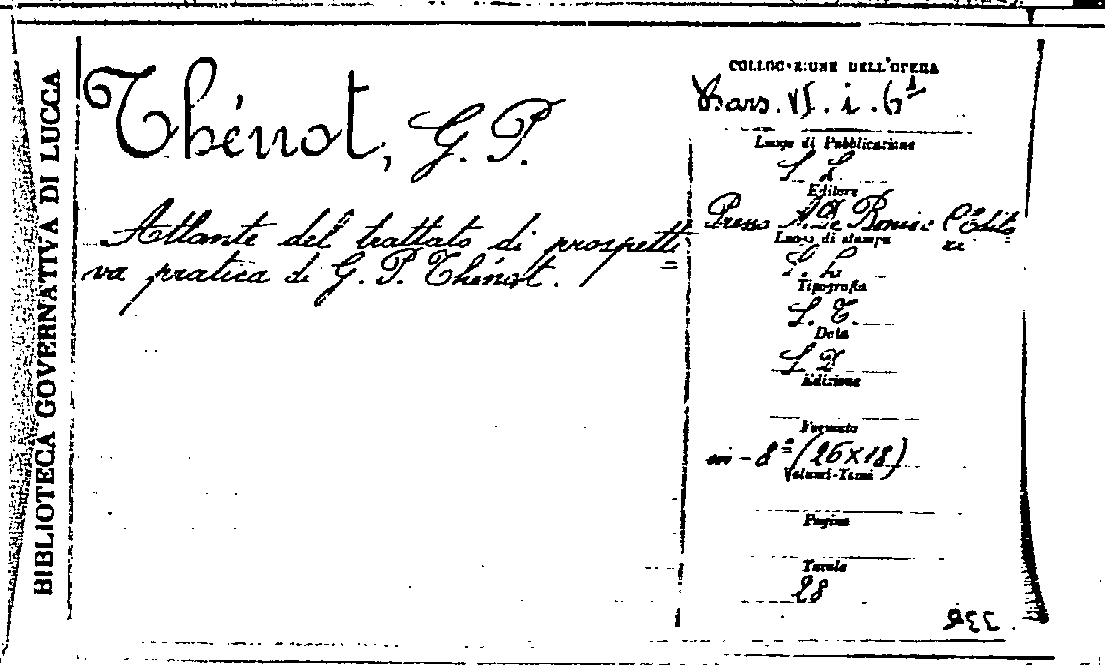 BIBLIOTECA GOVERNATIVA DI LUCCA
Thénot, G. P.
Atlante del trattato di prospetti=
va pratica di G. P. Thénot.
COLLOCAZIONE DELL'OPERA
VI. i.
Luogo di Pubblicazione
S. L.
Editore
Presso A. De Bonis: l'Edito=
re
Luogo di stampa
S. L.
Tipografia
S. T.
Data
S. D.
Edizione
Formato
in - 8º (26x18)
Volumi-Tomi
Pagine
Tavole
28